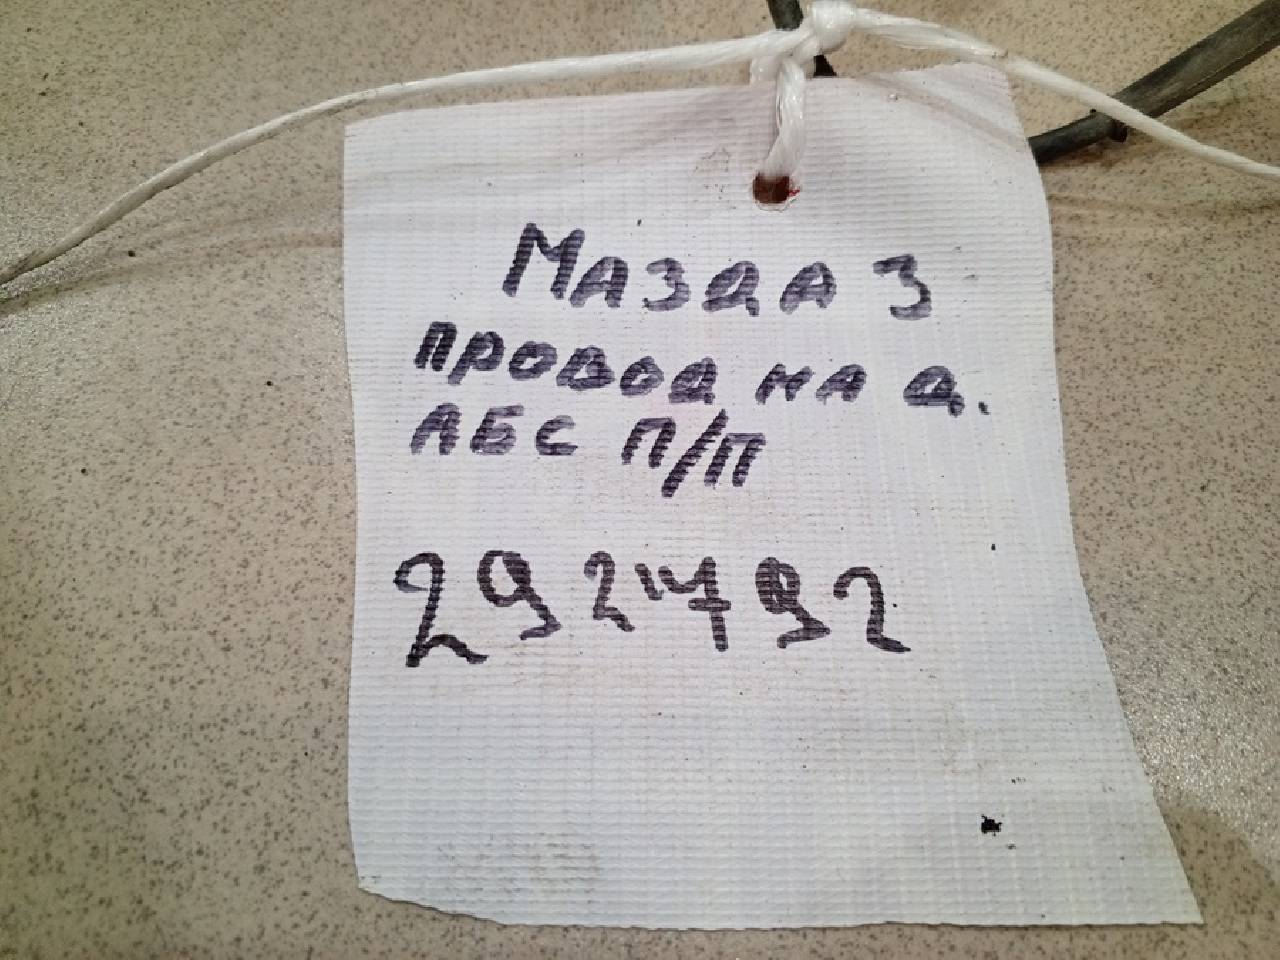 Мазда 3
провод на д.
АБС П/П
2927792